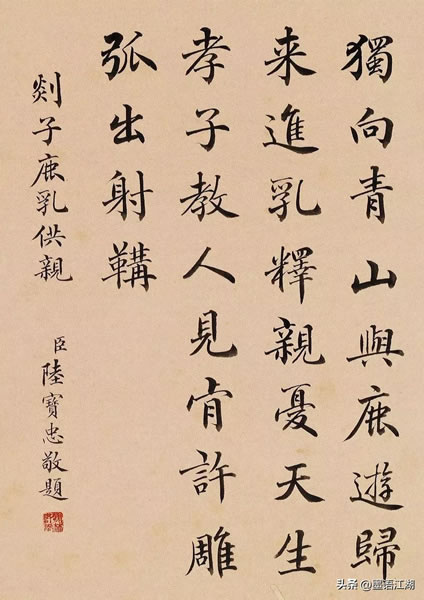 獨向青山與鹿遊歸
来進乳釋親憂天生
孝子教人見肯許雕
弧出射鞲
剡子鹿乳供親
臣陸寶忠敬題
头条 @墨语江湖